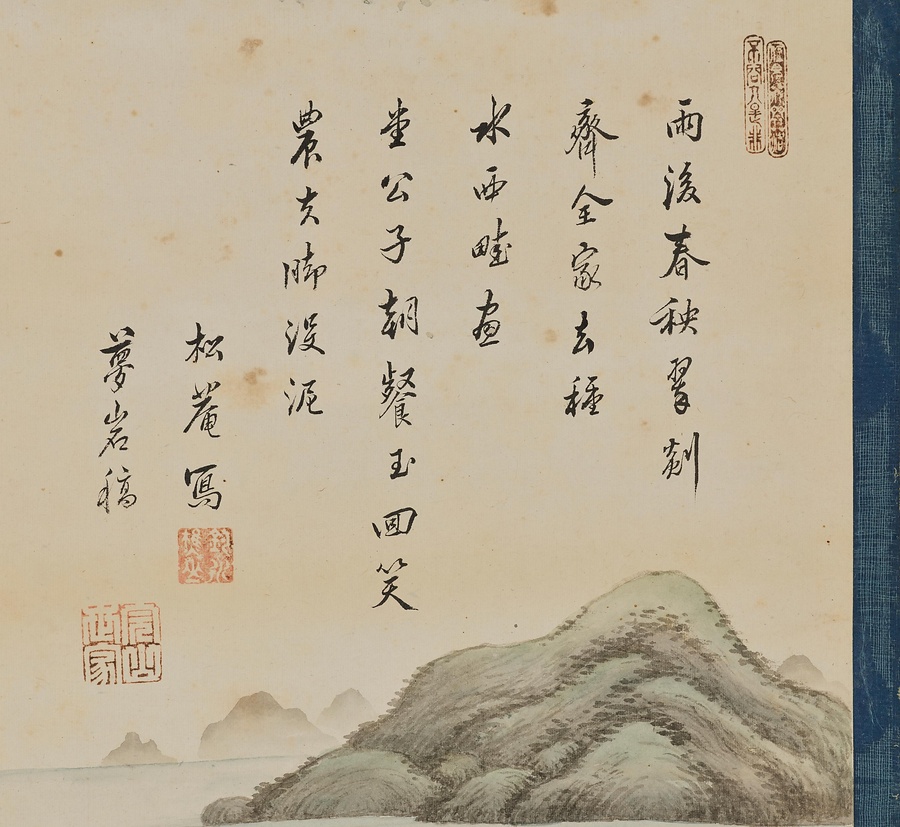 雨後春秧翠剡
齊全家去種
水西畦畫
堂公子朝餐玉回笑
農夫脚没泥
松菴寫
夢岩稿